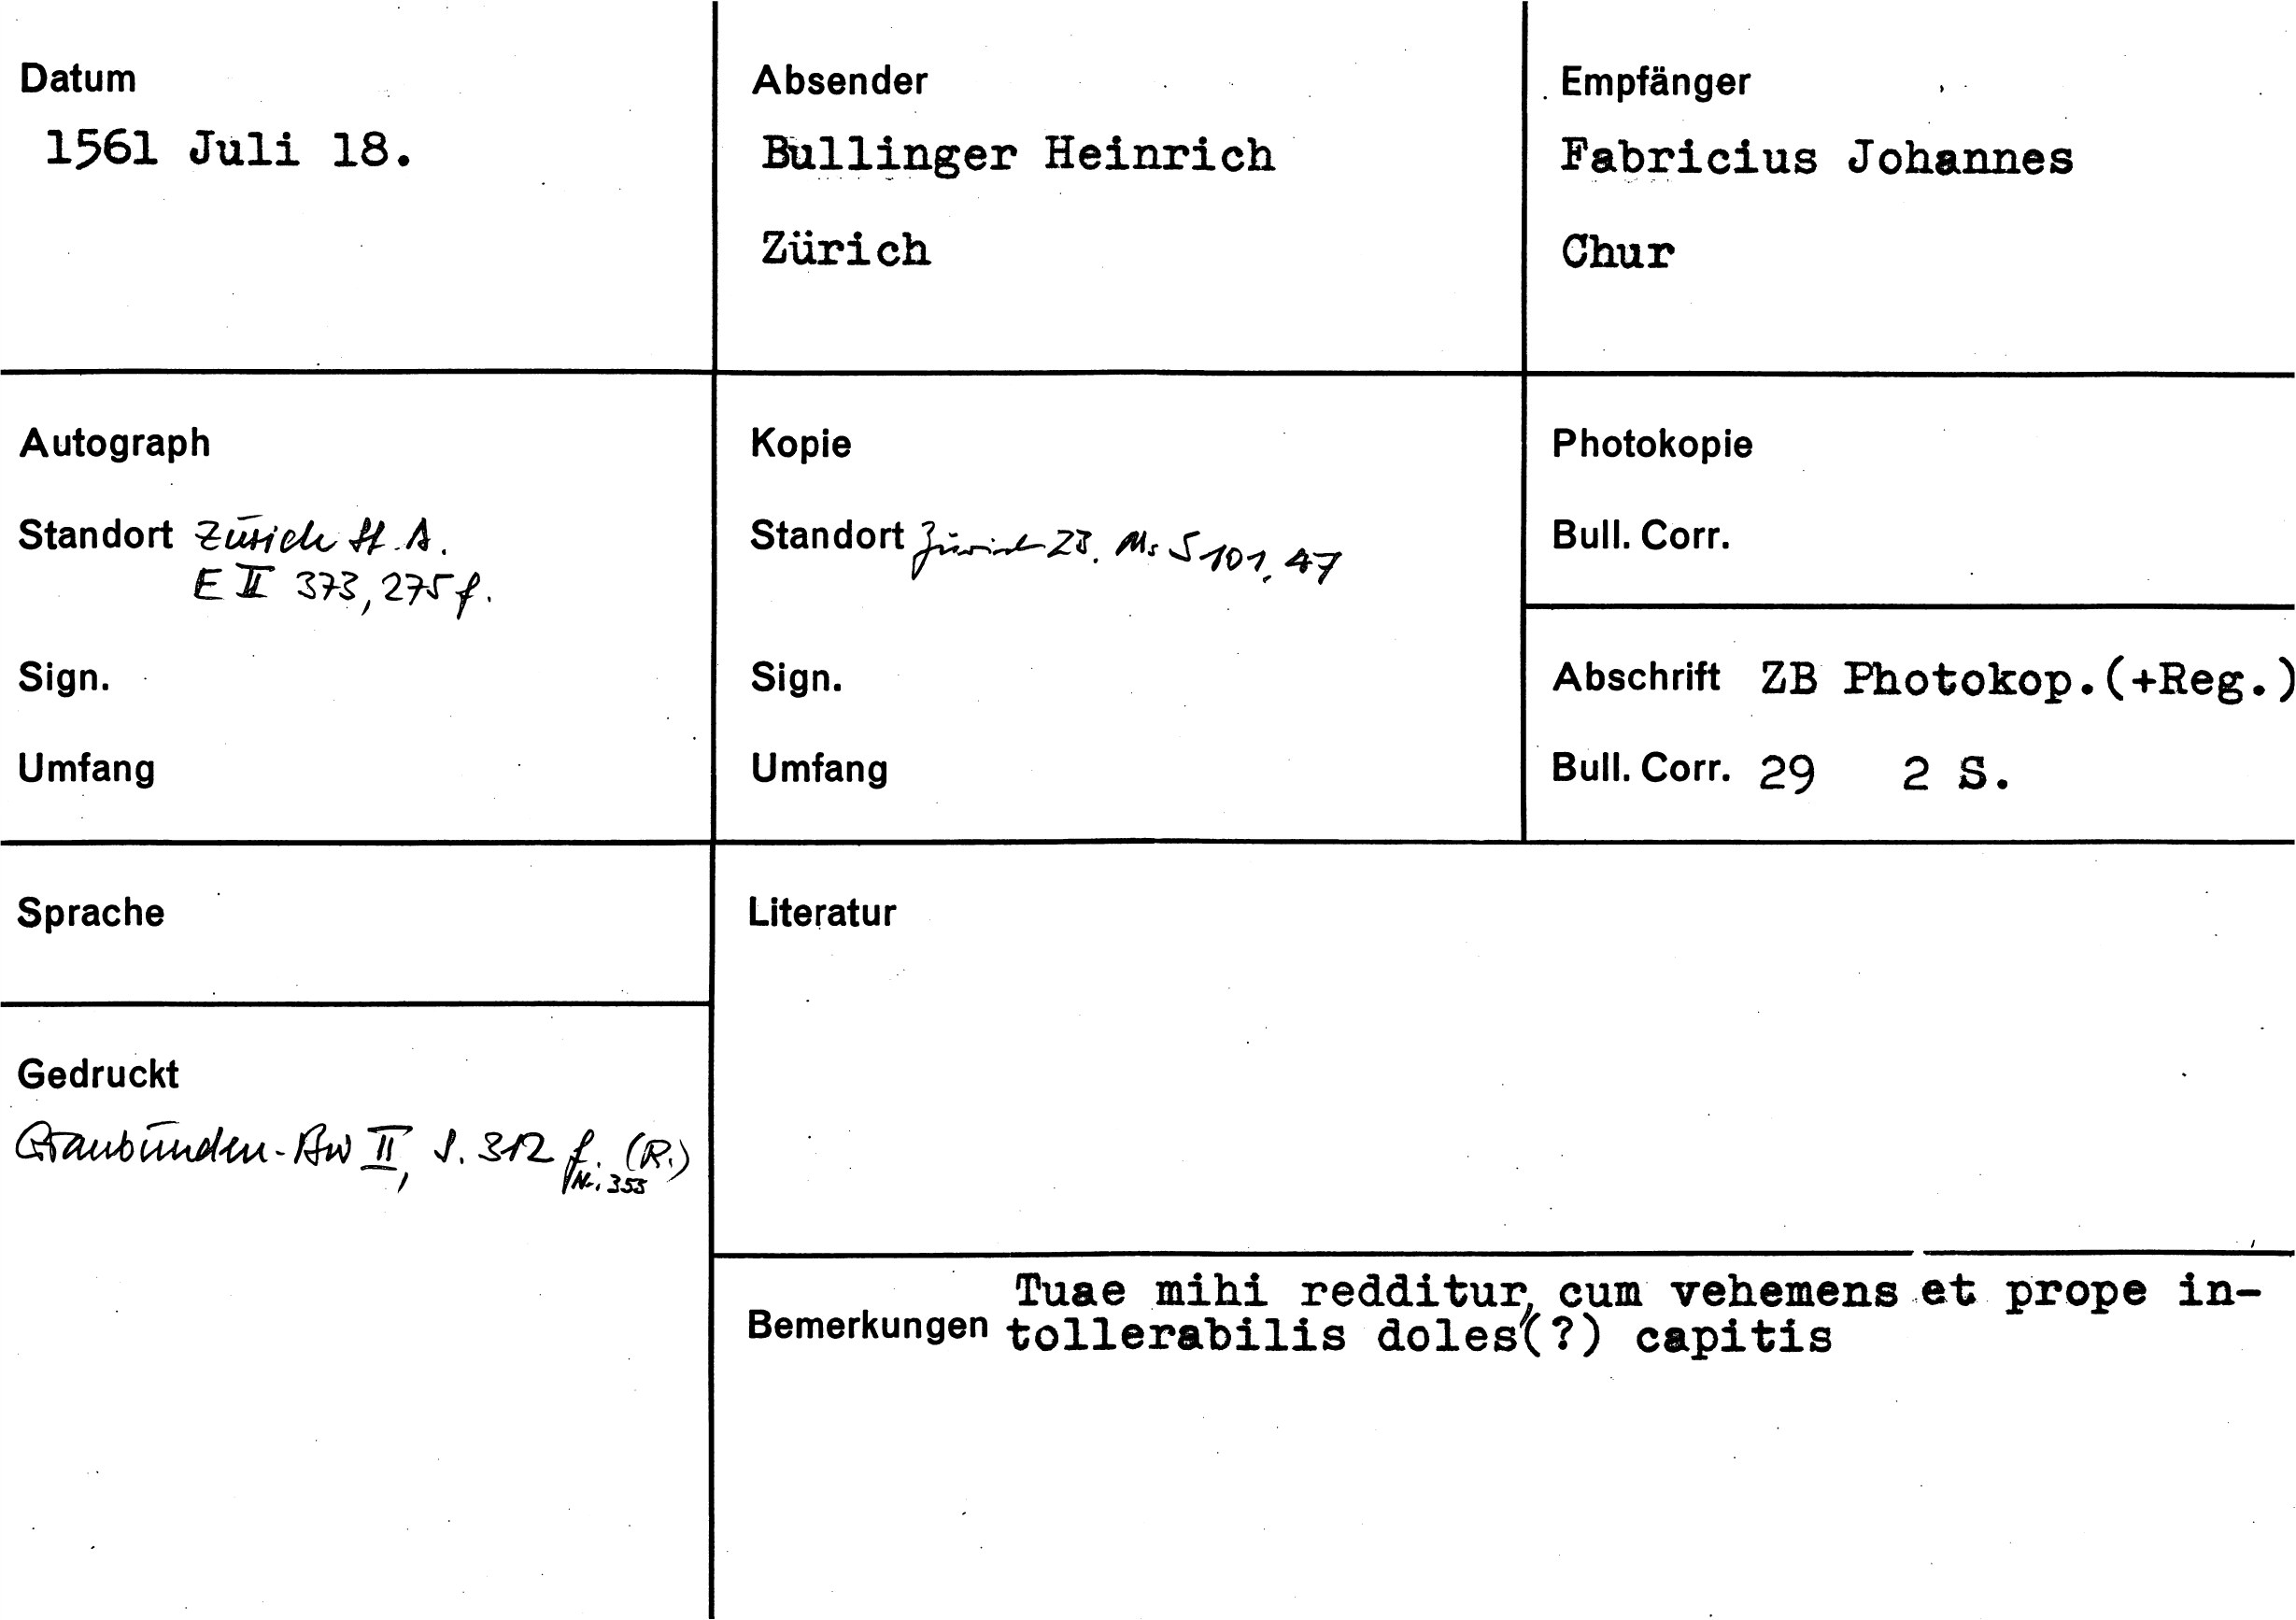 Datum
1561 Juli 18.
Absender
Bullinger Heinrich
Zürich
Empfänger
Fabricius Johannes
Chur
Autograph
Standort Zürich St.A.
E II 373, 275 f.
Sign.
Umfang
Kopie
Standort Zürich ZB. Ms S 101, 47
Sign.
Umfang
Photokopie
Bull. Corr.
Abschrift ZB Photokop.(+Reg.)
Bull. Corr. 29 2 S.
Sprache
Gedruckt
Graubünden-Bw II, S. 312 f. (R.)
Nr. 353
Literatur
Bemerkungen Tuae mihi redditur, cum vehemens et prope in-
tollerabilis doles(?) capitis